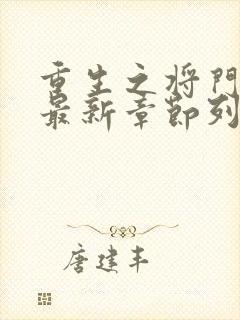 重生之将门
最新章节列
唐建丰